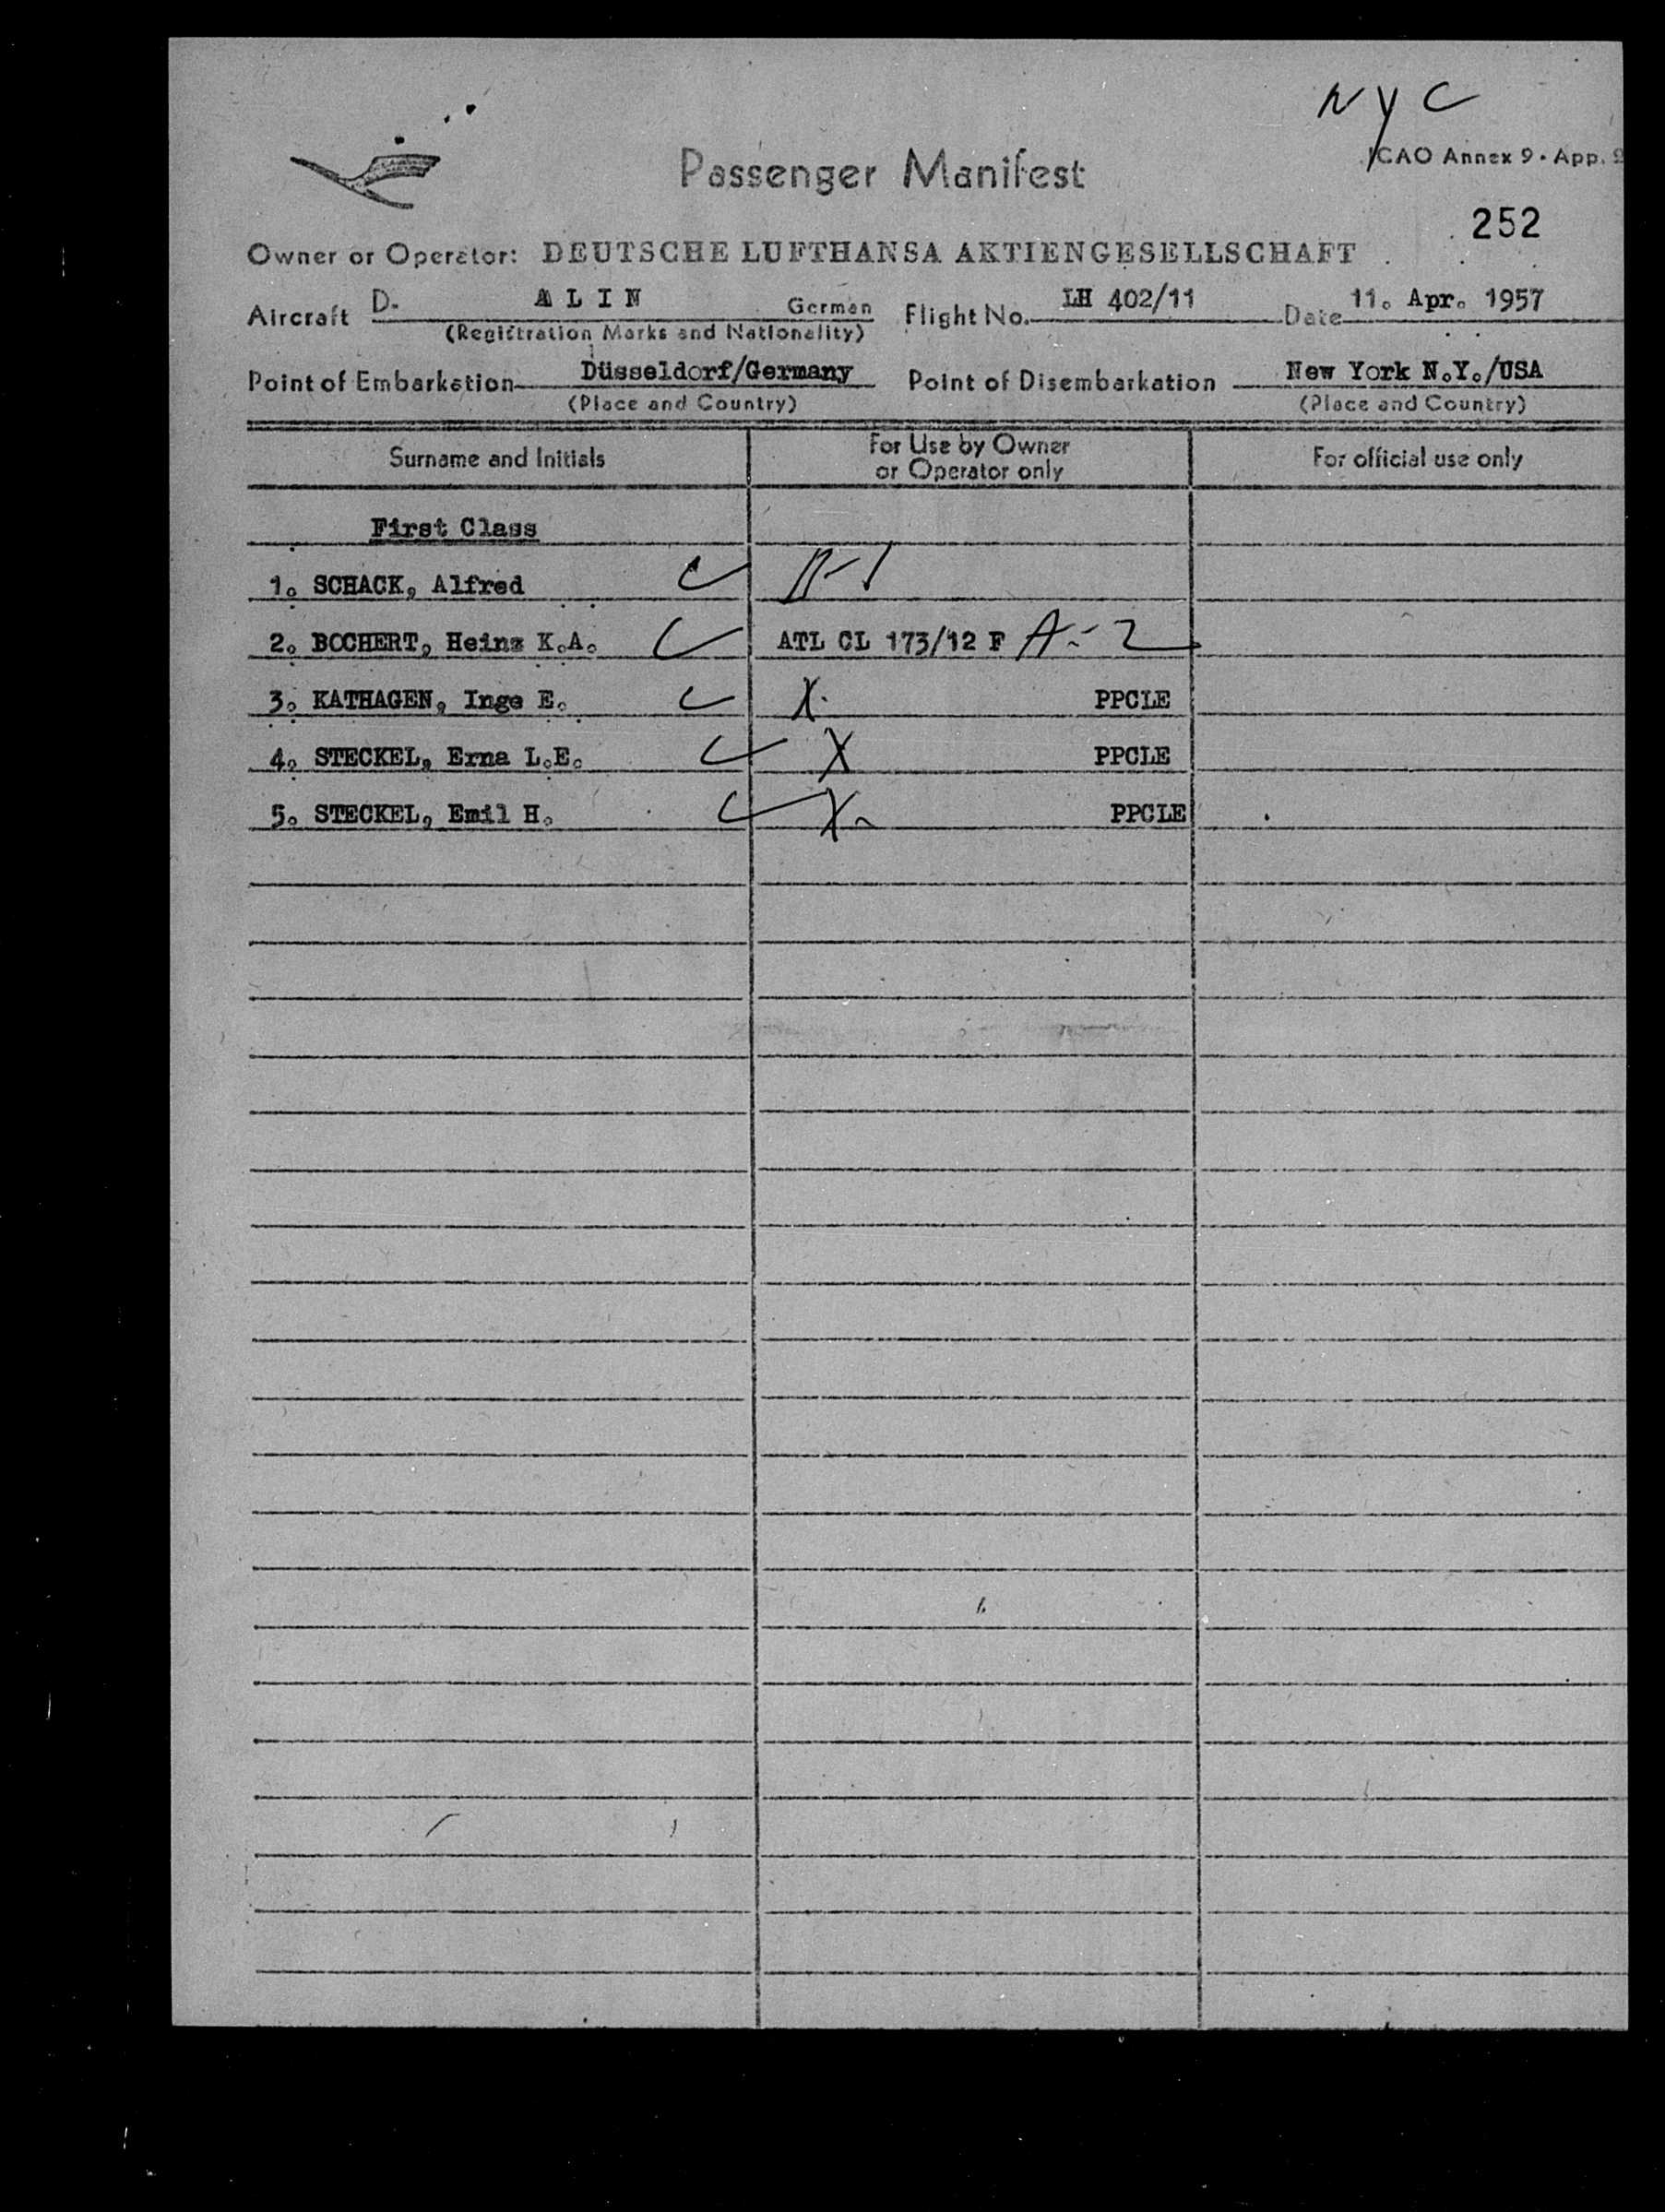 NYC
Passenger Manifest
ICAO Annex 9 · App. 9
252
Owner or Operator: DEUTSCHE LUFTHANSA AKTIENGESELLSCHAFT
Aircraft D- ALIN German Flight No. LH 402/11 Date 11. Apr. 1957
(Registration Marks and Nationality)
Point of Embarkation Düsseldorf/Germany Point of Disembarkation New York N.Y./USA
(Place and Country) (Place and Country)
Surname and Initials For Use by Owner or Operator only For official use only
First Class
1. SCHACK, Alfred
2. BOCHERT, Heinz K.A. ATL CL 173/12 F A-2
3. KATHAGEN, Inge E. X PPCLE
4. STECKEL, Erna L.E. X PPCLE
5. STECKEL, Emil H. X PPCLE